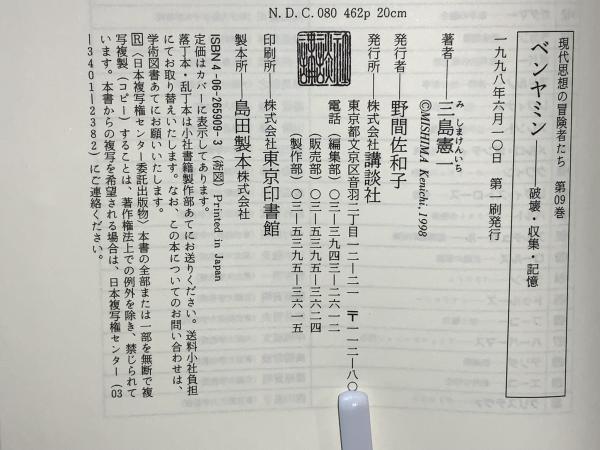 N.D.C. 080 462p 20cm
現代思想の冒険者たち 第09巻
ベンヤミン──破壊・収集・記憶
一九九八年六月一〇日 第一刷発行
みしまけんいち
著者──三島憲一
©MISHIMA Kenichi, 1998
発行者──野間佐和子
発行所──株式会社講談社
東京都文京区音羽二丁目一二―二一 〒一一二―八〇
電話(編集部)〇三―三九四三―二六一二
(販売部)〇三―五三九五―三六二四
(製作部)〇三―五三九五―三六一五
印刷所──株式会社東京印書館
製本所──島田製本株式会社
ISBN4-06-265909-3 (術図) Printed in Japan
定価はカバーに表示してあります。
落丁本・乱丁本は小社書籍製作部あてにお送りください。送料小社負担
にてお取り替えいたします。なお、この本についてのお問い合わせは、
学術図書あてにお願いいたします。
R〈日本複写権センター委託出版物〉本書の全部または一部を無断で複
写複製(コピー)することは、著作権法上での例外を除き、禁じられて
います。本書からの複写を希望される場合は、日本複写権センター(03
―3401―2382)にご連絡ください。